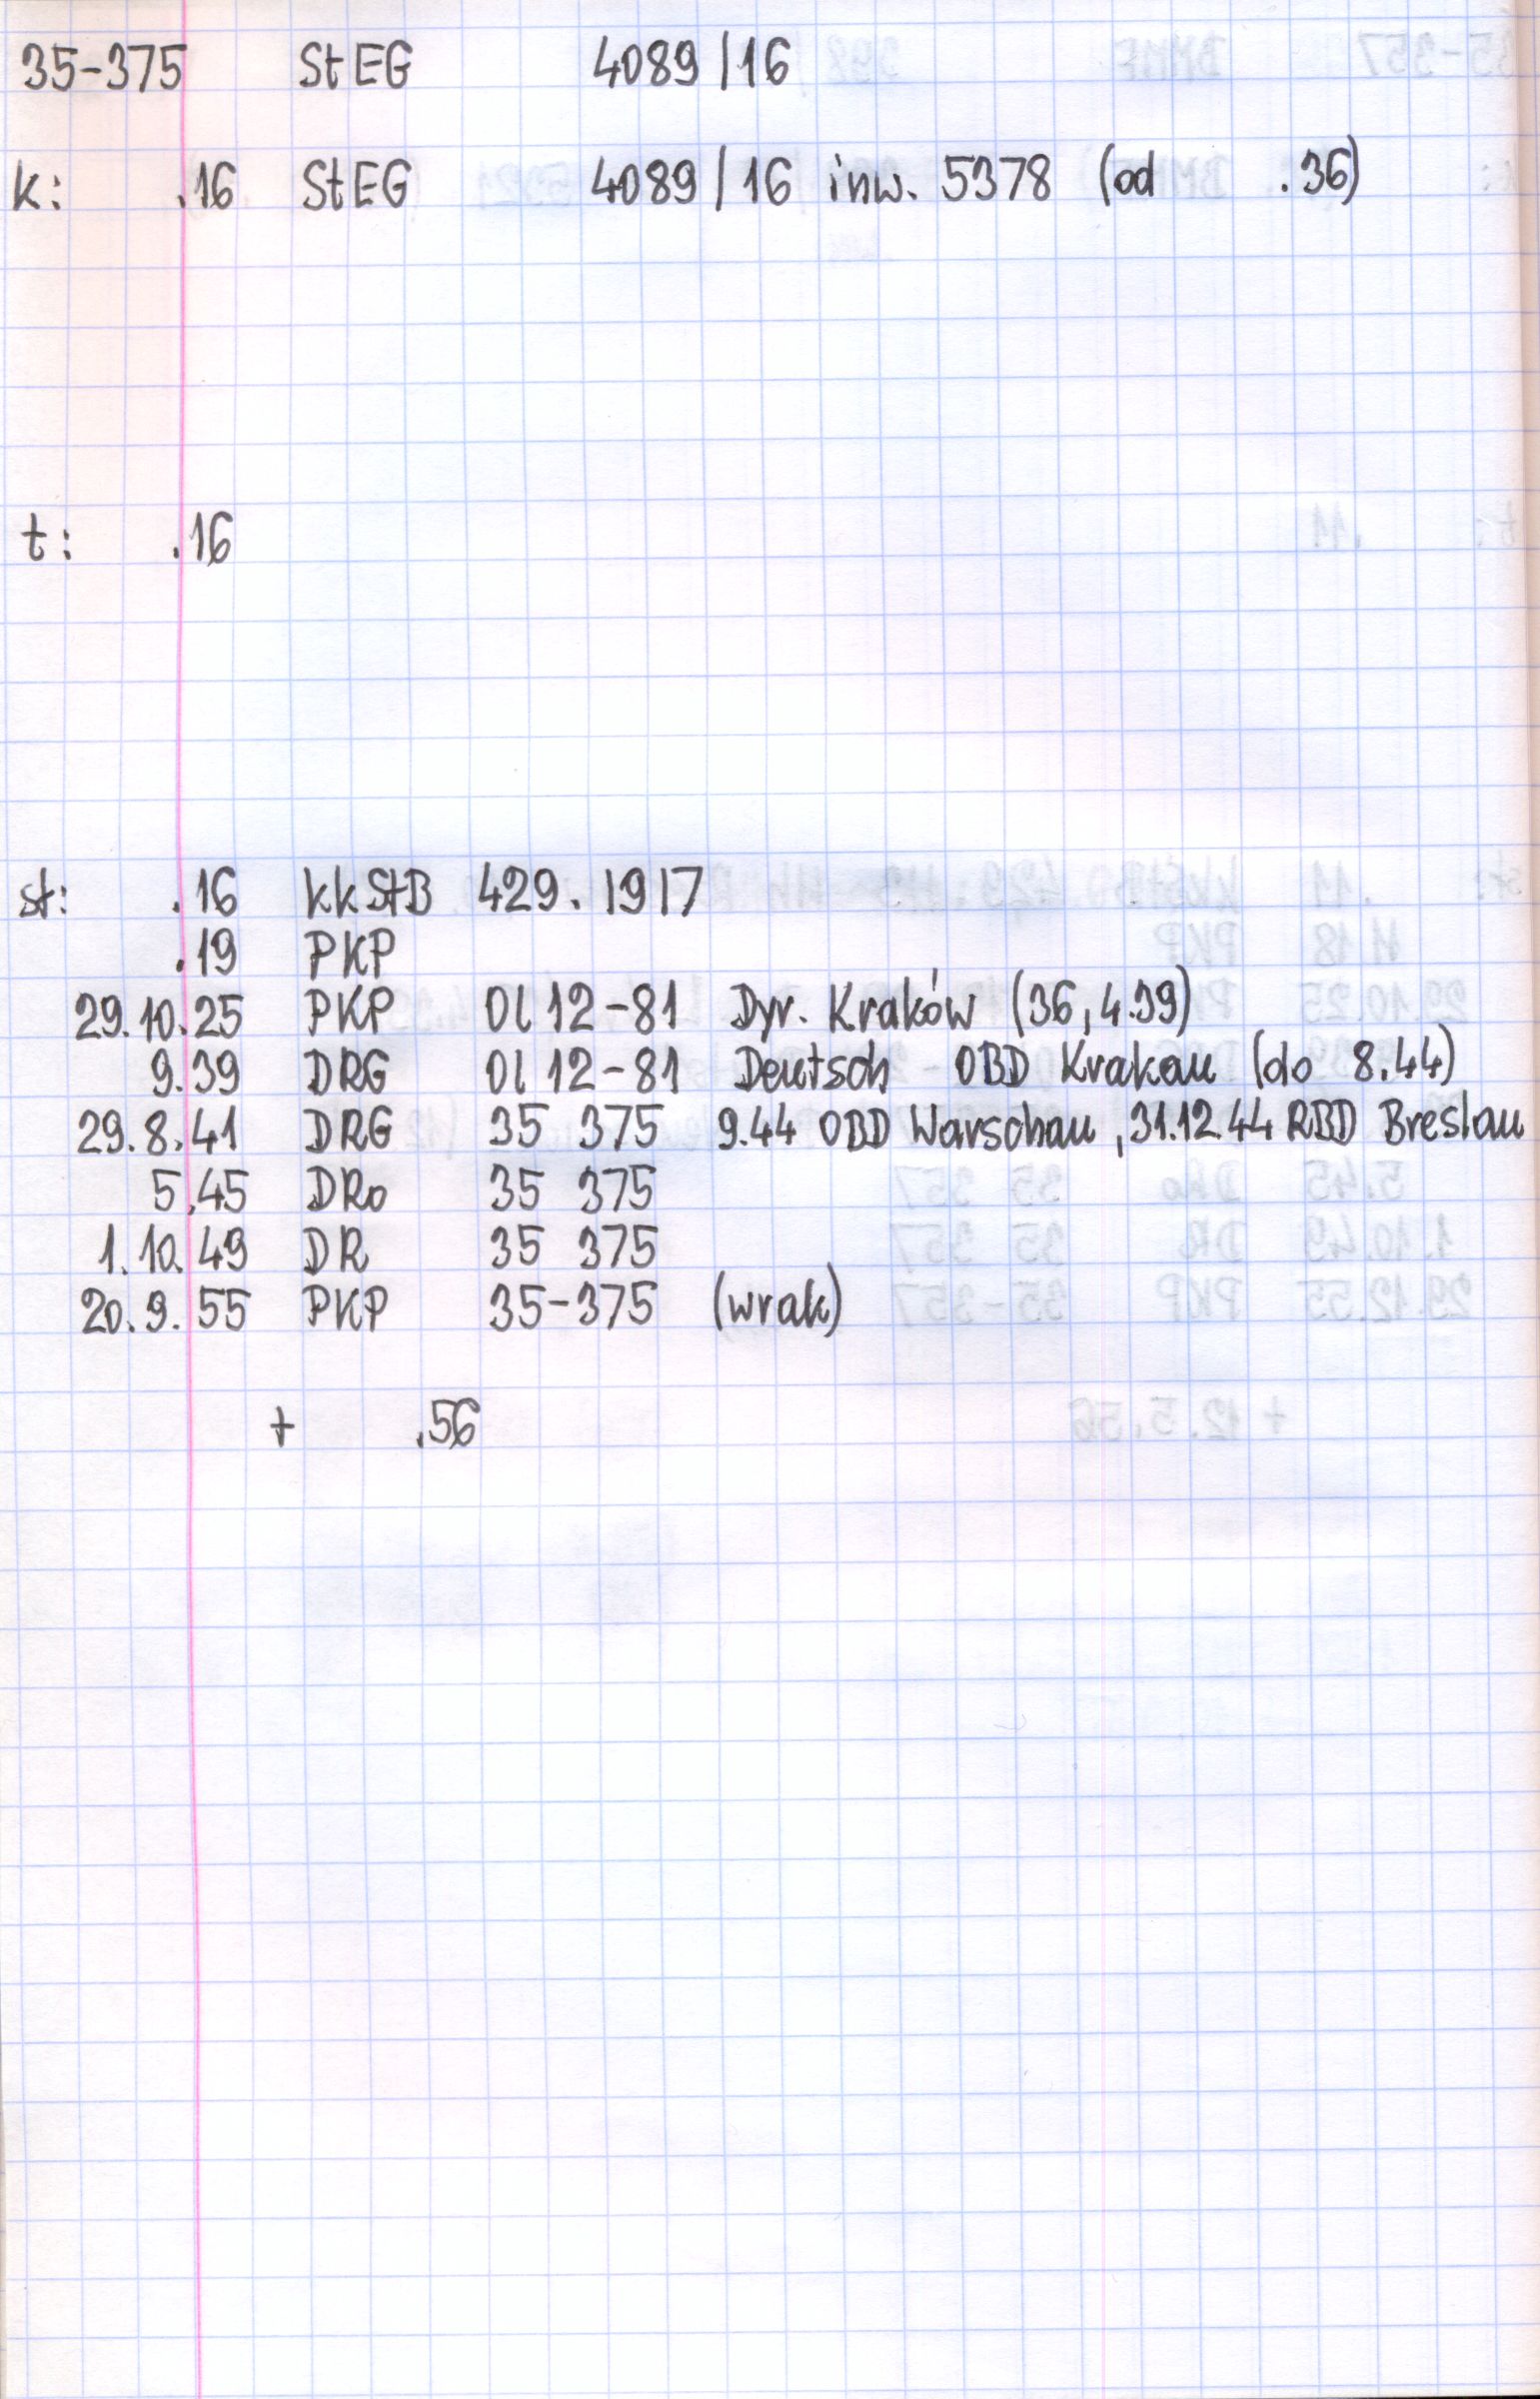 35-375 StEG 4089/16
k: .16 StEG 4089/16 inw. 5378 (od .36)
t: .16
st: .16 kkStB 429.1917
.19 PKP
29.10.25 PKP Ol 12-81 Dyr. Kraków (36, 4.39)
9.39 DRG Ol 12-81 Deutsch OBD Krakau (do 8.44)
29.8.41 DRG 35 375 9.44 OBD Warschau, 31.12.44 RBD Breslau
5.45 DRo 35 375
1.10.49 DR 35 375
20.9.55 PKP 35-375 (wrak)
+ .56